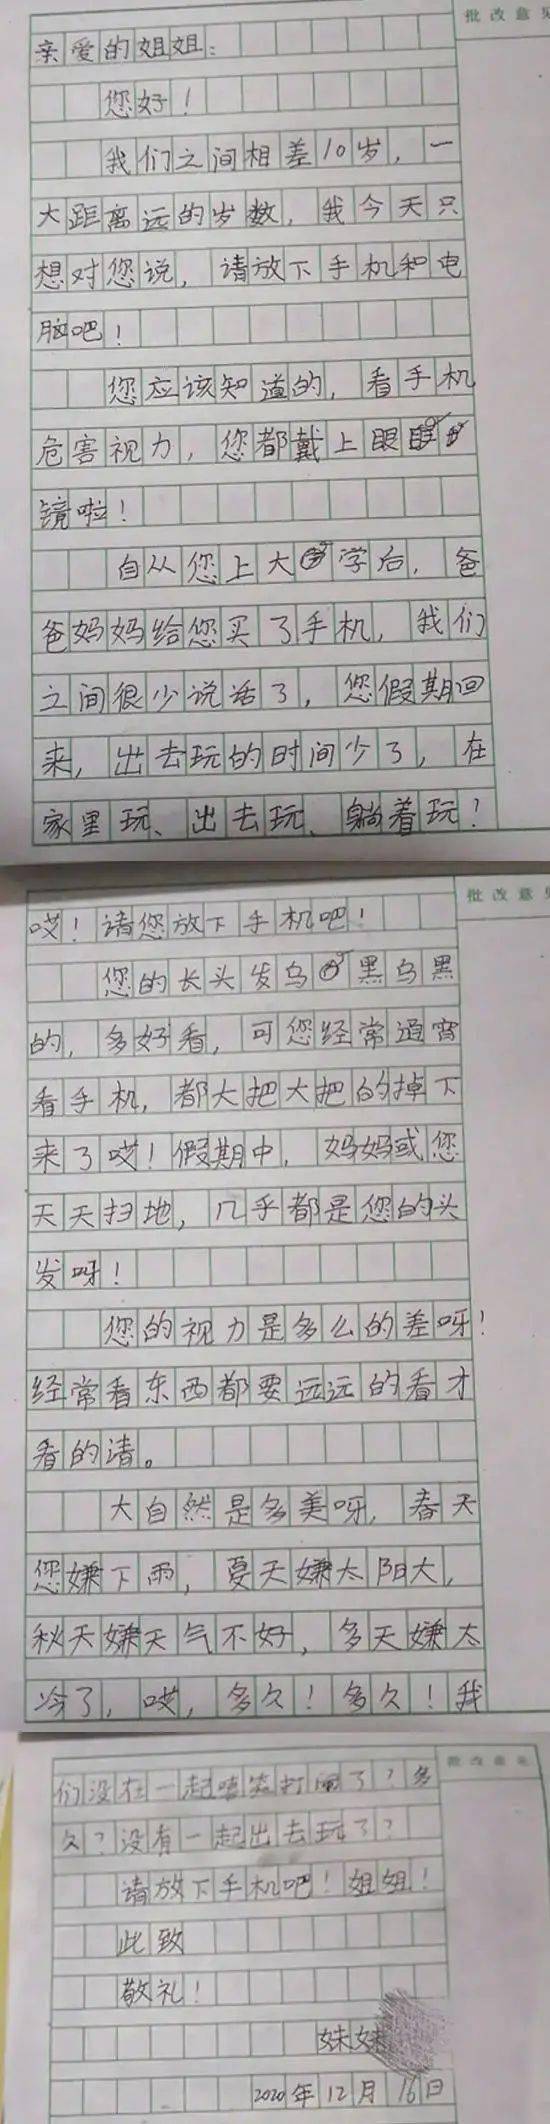 批改意见
亲爱的姐姐：
您好！
我们之间相差10岁，一
大距离远的岁数，我今天只
想对您说，请放下手机和电
脑吧！
您应该知道的，看手机
危害视力，您都戴上眼
镜啦！
自从您上大学后，爸
爸妈妈给您买了手机，我们
之间很少说话了，您假期回
来，出去玩的时间少了，在
家里玩、出去玩、躺着玩？
批改意见
哎！请您放下手机吧！
您的长头发乌黑乌黑
的，多好看，可您经常通宵
看手机，都大把大把的掉下
来了哎！假期中，妈妈或您
天天扫地，几乎都是您的头
发呀！
您的视力是多么的差呀！
经常看东西都要远远的看才
看的清。
大自然是多美呀，春天
您嫌下雨，夏天嫌太阳大，
秋天嫌天气不好，冬天嫌太
冷了，哎，多久！多久！我
批改意见
们没在一起嘻笑打闹了？多
久？没有一起出去玩了？
请放下手机吧！姐姐！
此致
敬礼！
妹妹
2020年12月16日